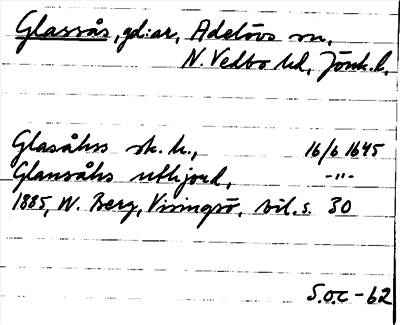 Glassås, gd:ar, Adelövs sn,
N. Vedbo hd, Jönk. l.
Glasåhss sk. h., 16/6 1645
Glansåhs uthjord, -"-
1885, W. Berg, Visingsö, bil. s. 30
S.O.C -62